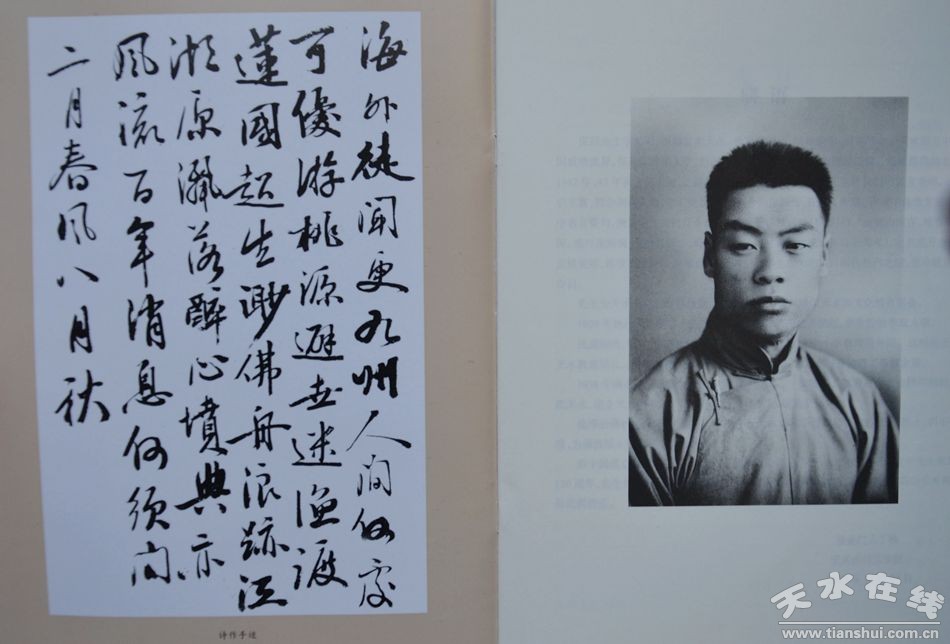 海外徒聞更九州人間何處
可優游桃源避世迷漁渡
蓮國超生渺佛舟浪跡江
湖原落醉心墳典亦
風流百年消息何須问
二月春風八月秋
诗作手迹
天水在线
www.tianshui.com.cn